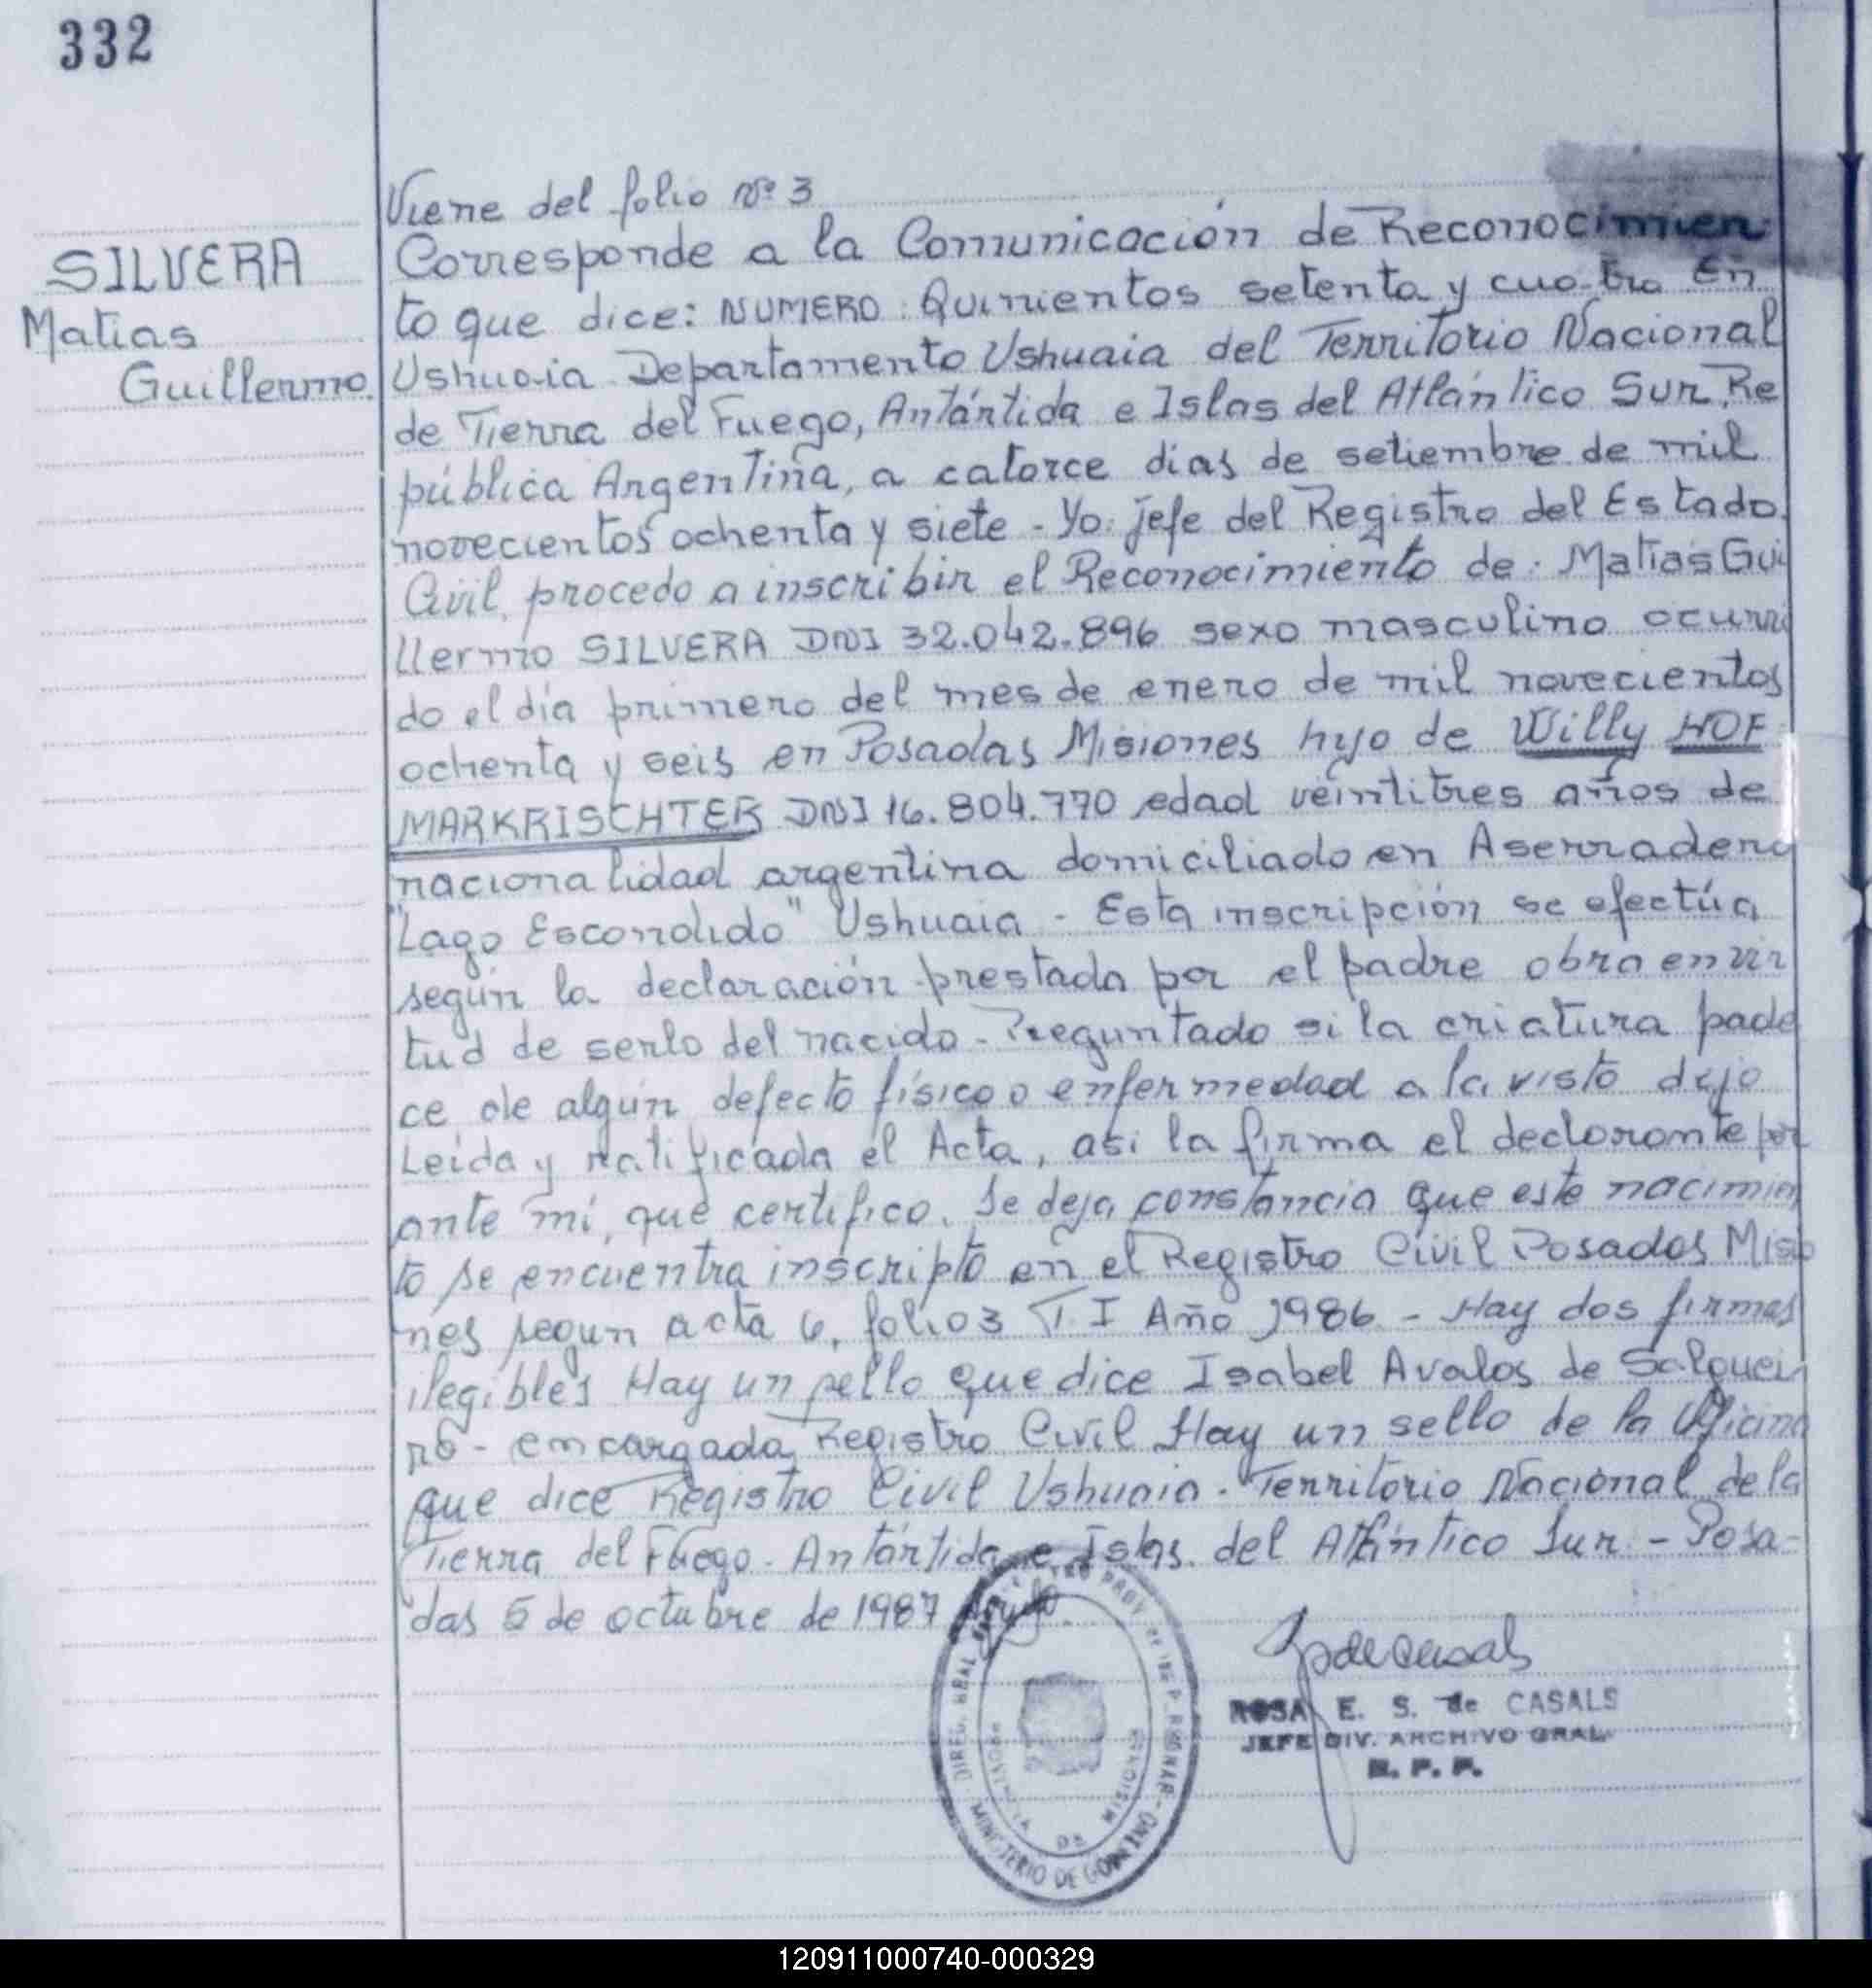 332
SILVERA
Matias
Guillermo.
Viene del folio Nº 3
Corresponde a la Comunicación de Reconocimien
to que dice: NUMERO: Quinientos setenta y cuatro En
Ushuaia Departamento Ushuaia del Territorio Nacional
de Tierra del Fuego, Antártida e Islas del Atlántico Sur, Re
pública Argentina, a catorce dias de setiembre de mil
novecientos ochenta y siete - Yo: jefe del Registro del Estado
Civil, procedo a inscribir el Reconocimiento de: Matias Gui
llermo SILVERA DNI 32.042.896 sexo masculino ocurri
do el día primero del mes de enero de mil novecientos
ochenta y seis en Posadas Misiones hijo de Willy HOF
MARKRISCHTER DNI 16.804.770 edad veintitres años de
nacionalidad argentina domiciliado en Aserradero
"Lago Escondido" Ushuaia - Esta inscripción se efectúa
según la declaración prestada por el padre obra en vir
tud de serlo del nacido - Preguntado si la criatura pade
ce de algún defecto físico o enfermedad a la vista dijo
Leida y ratificada el Acta, así la firma el declarante por
ante mí, que certifico. Se deja constancia que este nacimien
to se encuentra inscripto en el Registro Civil Posadas Misio
nes segun acta 6, folio 3 T. I Año 1986 - Hay dos firmas
ilegibles Hay un sello que dice Isabel Avalos de Salguei
ro - encargada Registro Civil Hay un sello de la Oficina
que dice Registro Civil Ushuaia - Territorio Nacional de la
Tierra del Fuego - Antártida e Islas del Atlántico Sur - Posa-
das 5 de octubre de 1987
DIREC. GRAL PROV. MINISTERIO DE GOBIERNO
PROVINCIA DE MISIONES
de Casals
ROSA E. S. de CASALS
JEFE DIV. ARCHIVO GRAL.
R. P. P.
120911000740-000329